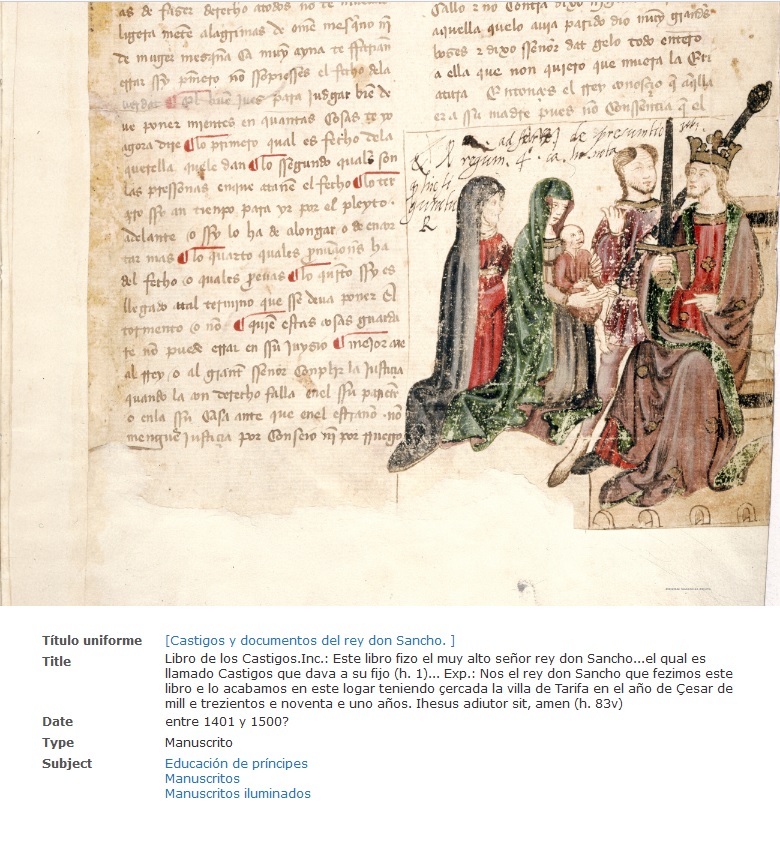 as de fazer derecho atodos no te
ligera mete alagrimas de ome mesqino ni
de muger mesqina Ca muy ayna te
errar ssy primero no ssopiesses el fecho dela
verdat El buen jues para judgar bien de
ve poner mientes en quantas Cosas te yo
agora dire lo primero qual es fecho dela
querella quele dan lo ssegundo quales son
las perssonas enque atañe el fecho lo ter
çero ssy an tienpo para yr por el pleyto
adelante o ssy lo ha de alongar o de encor
tar mas lo quarto quales ha
del fecho o quales prevas lo quito ssy es
llegado atal termino que sse deva poner El
tormento o no quie estas cosas guarda
re no puede errar en ssu juysio mejor
al Rey o al grant sseñor Conplir la justiçia
quando la con derecho falla enel ssu
o enla ssu Casa ante que enel estraño no
mengue justiçia por Consejo ni por Rruego
Callo z no
aquella quelo avia parido dio muy grandes
boses z dixo sseñor dat gelo todo entero
a ella que non quiero que muera la Cri
atura Entonçes el Rey conosçio q aqlla
era ssu madre pues no Conssentia q el
regum. 4.
Título uniforme [Castigos y documentos del rey don Sancho. ]
Title Libro de los Castigos.Inc.: Este libro fizo el muy alto señor rey don Sancho...el qual es
llamado Castigos que dava a su fijo (h. 1)... Exp.: Nos el rey don Sancho que fezimos este
libro e lo acabamos en este logar teniendo çercada la villa de Tarifa en el año de Çesar de
mill e trezientos e noventa e uno años. Ihesus adiutor sit, amen (h. 83v)
Date entre 1401 y 1500?
Type Manuscrito
Subject Educación de príncipes
Manuscritos
Manuscritos iluminados